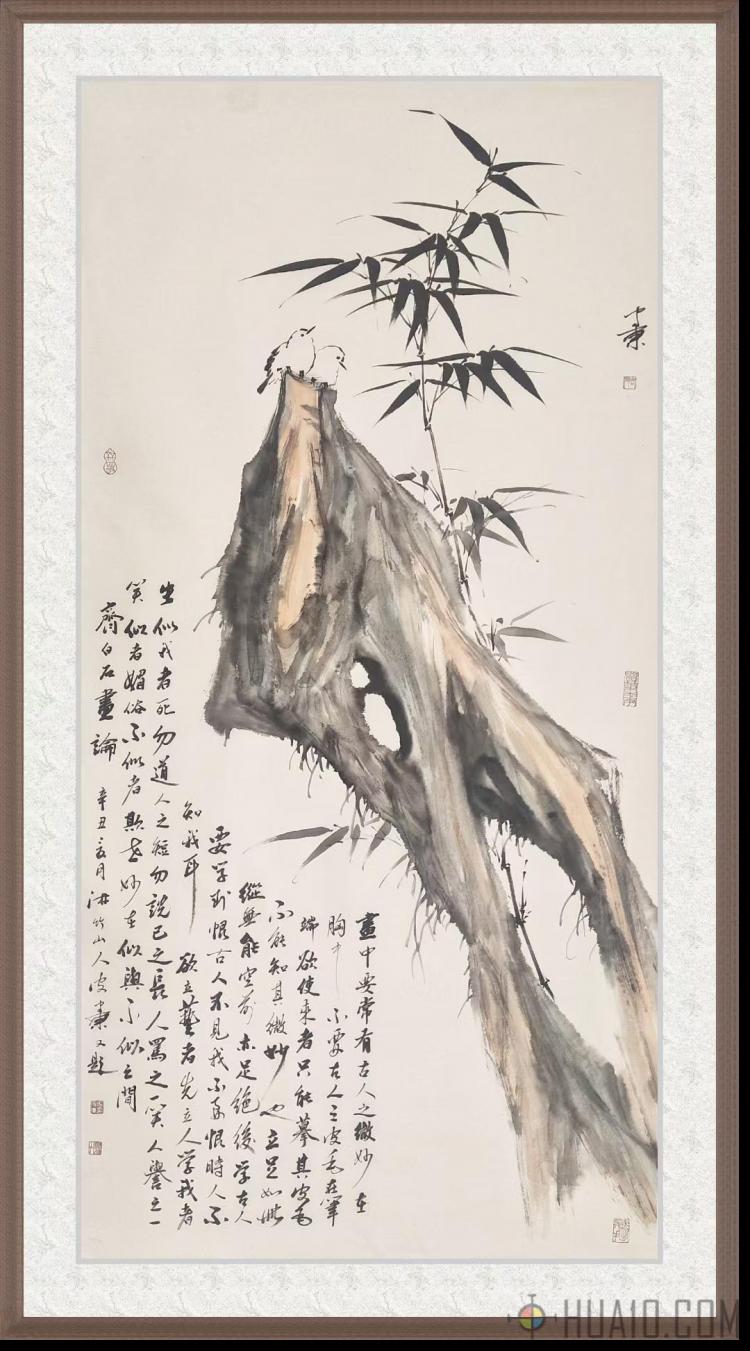 畫中要常有古人之微妙在
胸中不要古人之皮毛在筆
端欲使來者只能摹其皮毛
不能知其微妙也立足如此
縱無能空前亦足絶後學古人
要學到恨古人不見我不要恨時人不
知我耳 欲立藝者先立人學我者
生似我者死勿道人之短勿説己之長人罵之一笑人譽之一
笑似者媚俗不似者欺世妙在似與不似之間
齊白石畫論 辛丑夏月 竹山人皮 又題
HUA10.COM